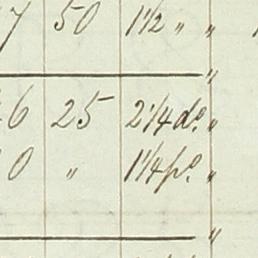 7 50 1 1/2 " "
"
6 25 2 1/4 do "
0 " 1 1/4 po "
"